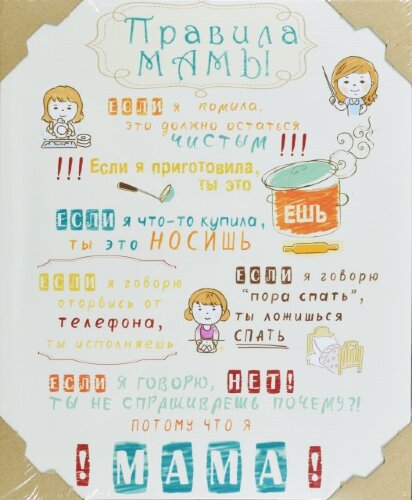 Правила
МАМЫ
ЕСЛИ я помыла,
это должно остаться
чистым !!!
!!! Если я приготовила,
ты это
ЕШЬ
ЕСЛИ я что-то купила,
ты это НОСИШЬ
ЕСЛИ я говорю
оторвись от
телефона,
ты исполняешь
ЕСЛИ я говорю
"пора спать",
ты ложишься
СПАТЬ
ЕСЛИ Я ГОВОРЮ, НЕТ!
ТЫ НЕ СПРАШИВАЕШЬ ПОЧЕМУ?!
ПОТОМУ ЧТО Я
! МАМА !